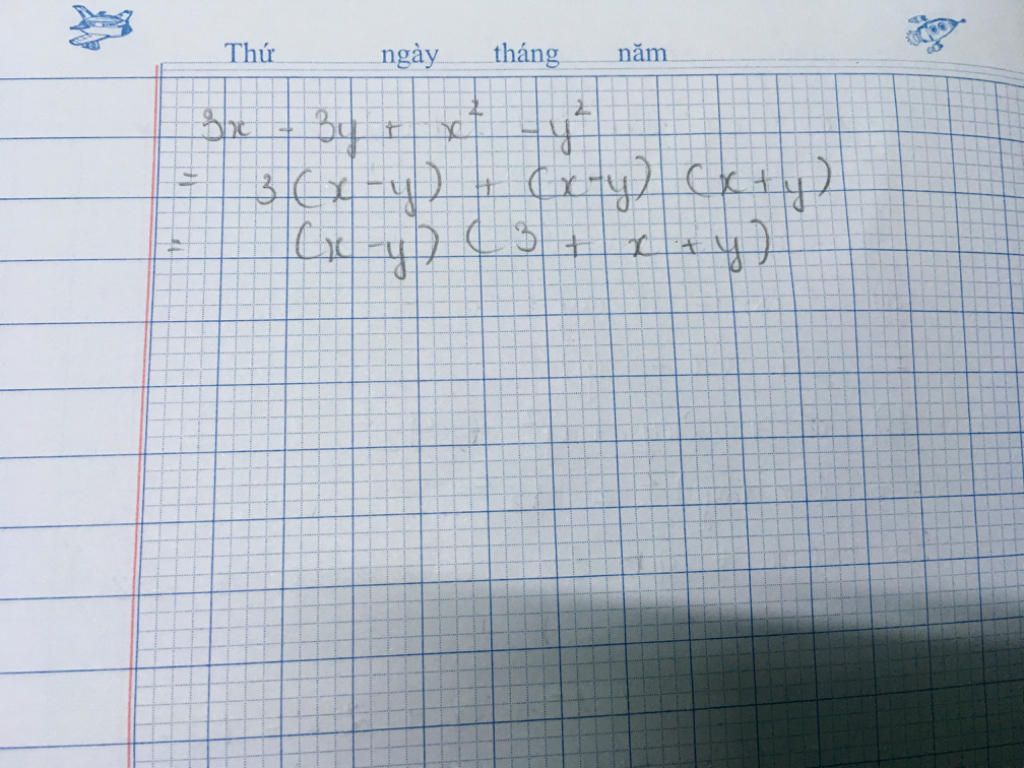 Thứ ngày tháng năm
3x - 3y + x² - y²
= 3(x - y) + (x - y) (x + y)
= (x - y) (3 + x + y)